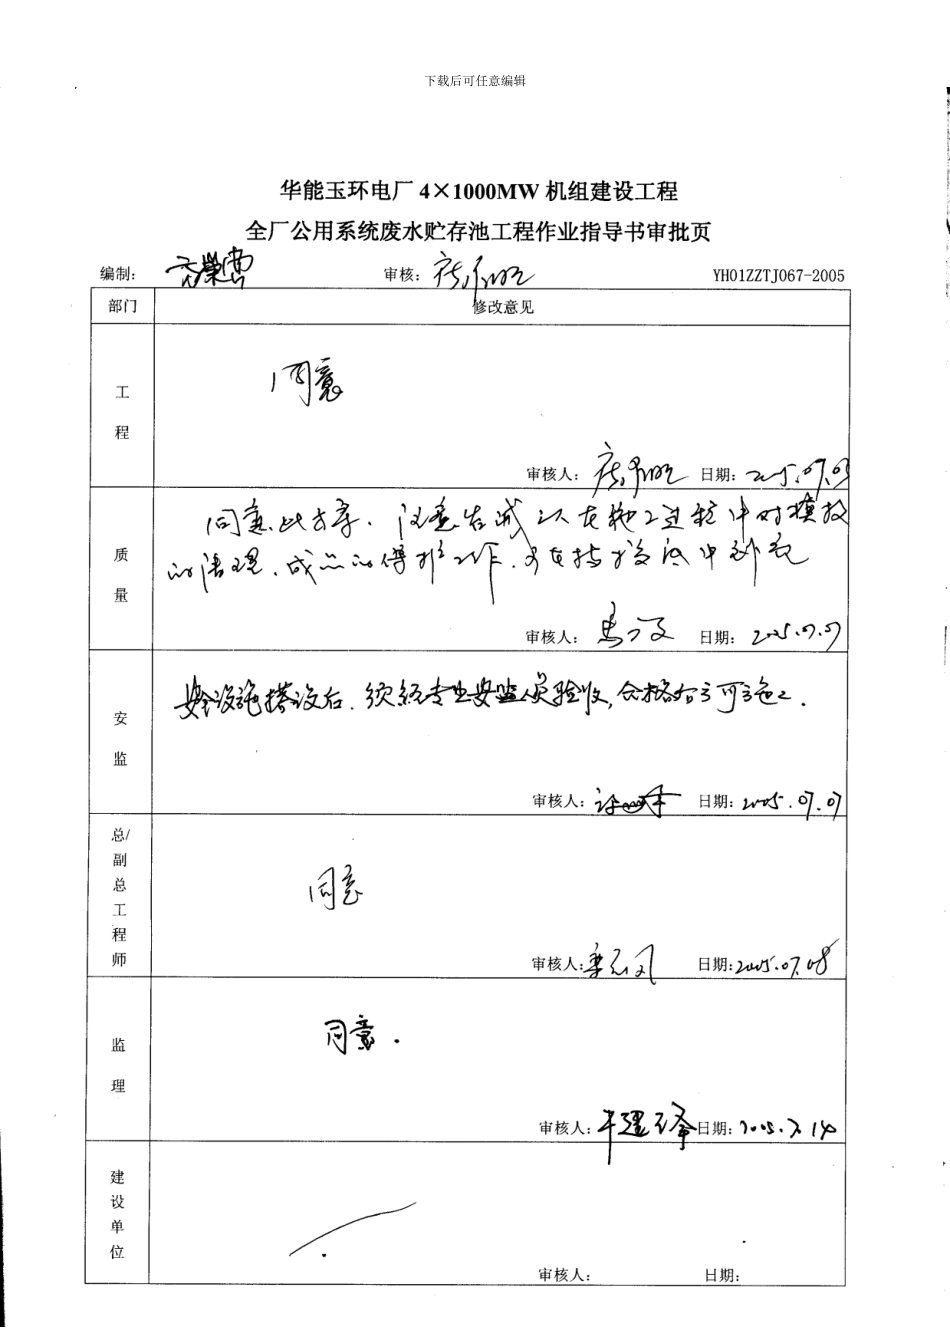 下载后可任意编辑
华能玉环电厂 4×1000MW 机组建设工程
全厂公用系统废水贮存池工程作业指导书审批页
编制: 审核: YH01ZZTJ067-2005
部门 修改意见
工程
同意
审核人: 日期: 2005.07.03
质量
同意此方案. 注意 在施工过程中对模板
的清理、成品的保护工作.
审核人: 日期: 2005.07.07
安监
安全设施搭设后, 须经专业安监人员验收, 合格后方可施工.
审核人: 日期: 2005.07.07
总/副总工程师
同意
审核人: 日期: 2005.07.08
监理
同意.
审核人: 日期: 2005.7.14
建设单位
审核人: 日期: